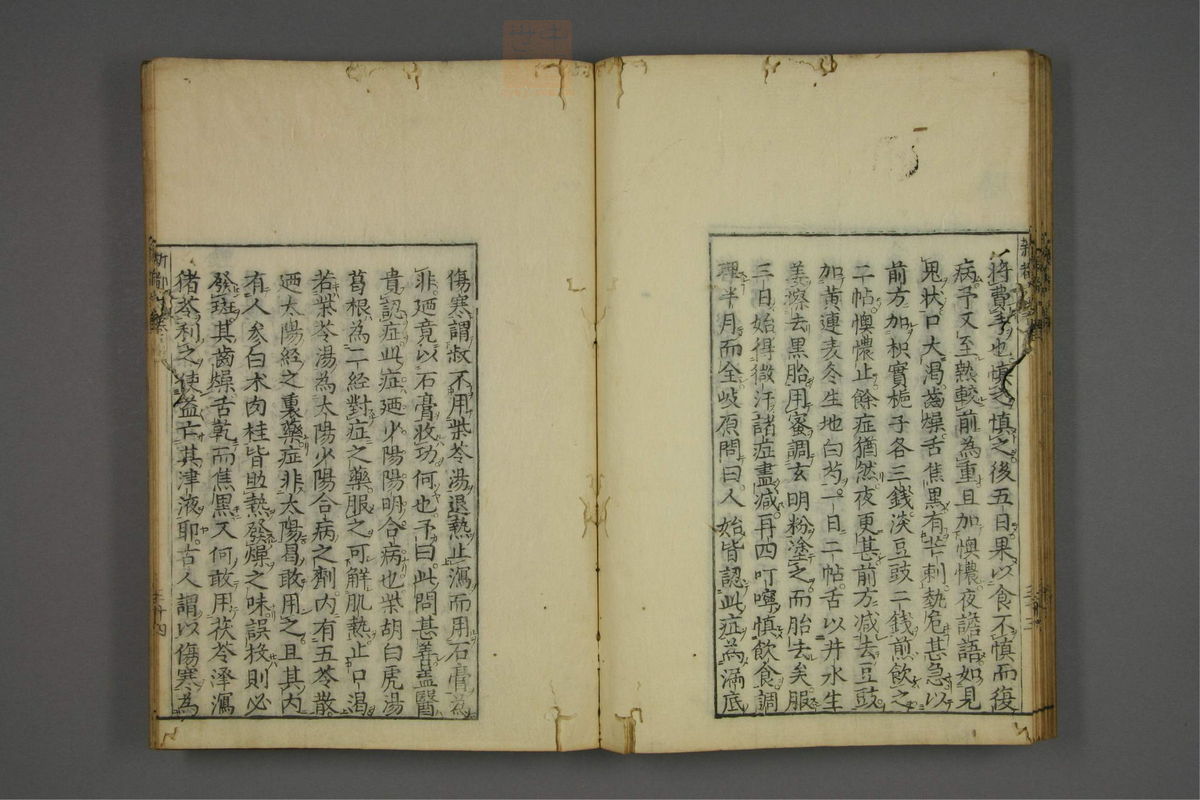 將費手也慎之慎之後五日果以食不慎而復
病予又至熱較前為重且加懊憹夜譫語如見
鬼状口大渴齒燥舌焦黑有芒刺勢危甚急以
前方加枳實梔子各三錢淡豆豉二錢煎飲之
二帖懊憹止餘症猶然夜更甚前方減去豆豉
加黄連麦冬生地白芍一日二帖舌以井水生
姜擦去黒胎用蜜調玄明粉塗之而胎去矣服
三日始得微汗諸症盡减再四叮嚀慎飲食調
理半月而全岐原問曰人始皆認此症為漏底
傷寒謂叔不用柴苓湯退熱止瀉而用石膏為
非廼竟以石膏收功何也予曰此問甚善盖醫
貴認症此症廼少陽陽明合病也柴胡白虎湯
葛根為二經對症之藥服之可解肌熱止口渴
若柴苓湯為太陽少陽合病之劑内有五苓散
廼太陽經之裏藥症非太陽曷敢用之且其内
有人参白术肉桂皆助熱發燥之味誤投則必
發斑其齒燥舌乾而焦黒又何敢用茯苓澤瀉
猪苓利之使益亡其津液耶古人謂以傷寒為